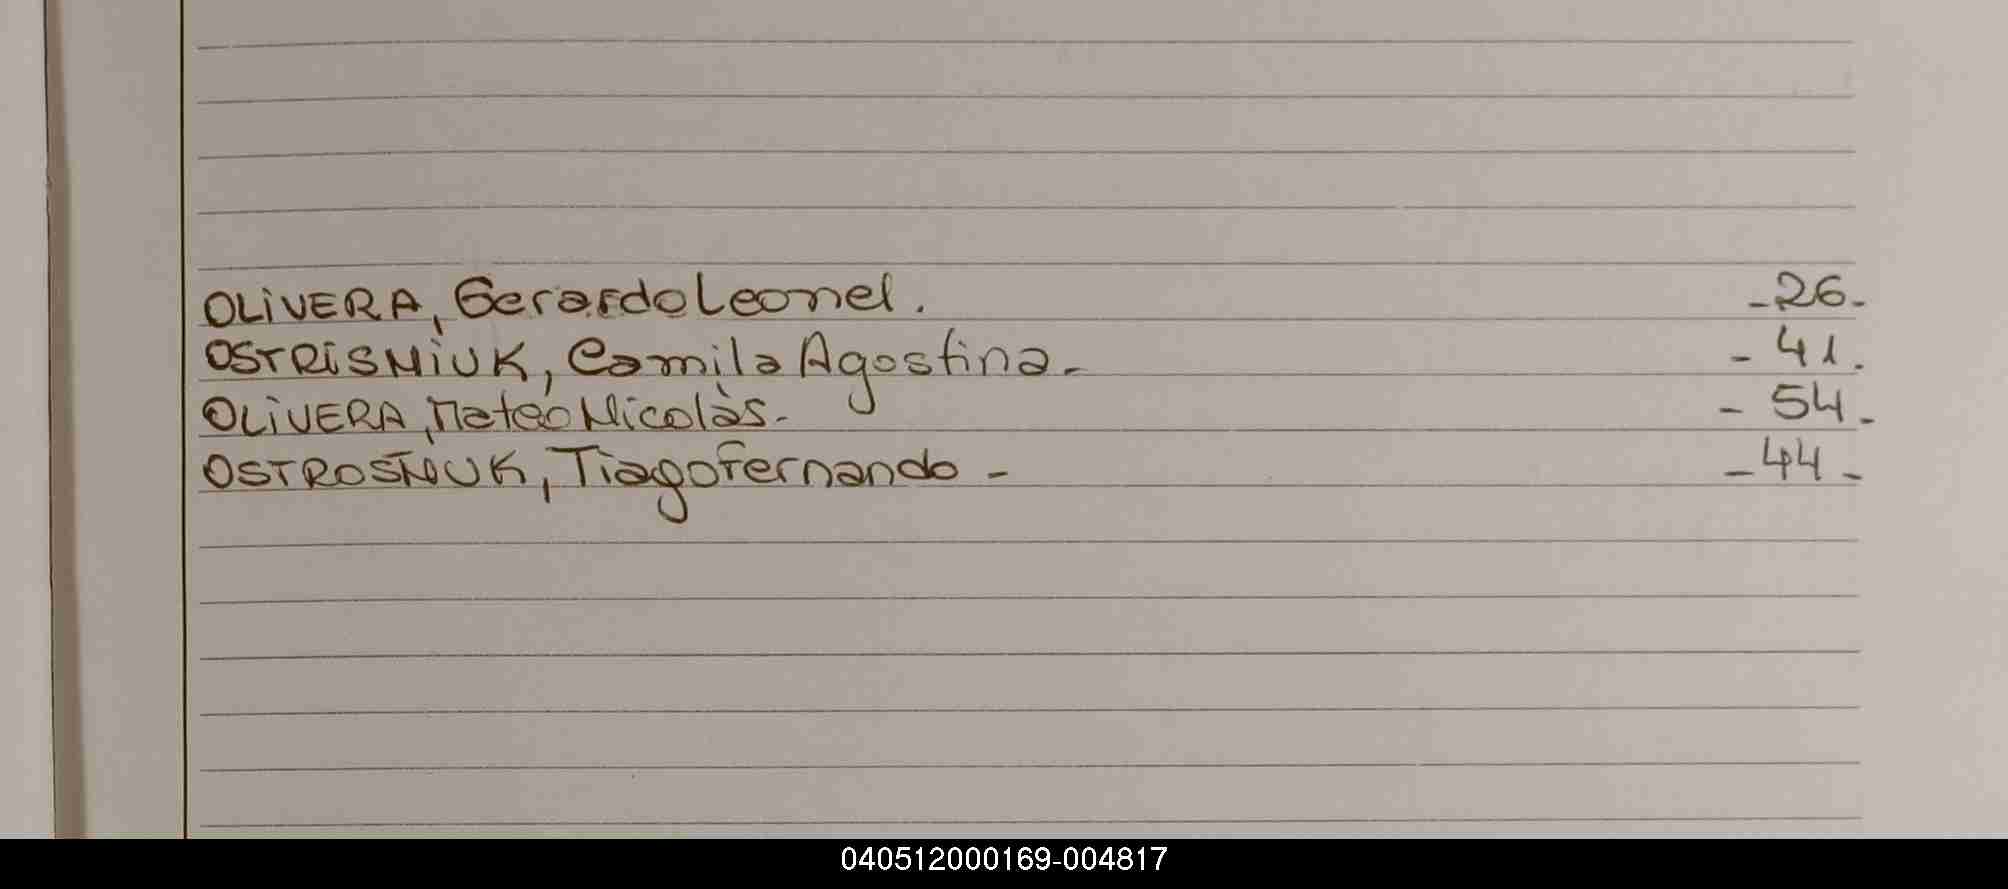 OLIVERA, Gerardo Leonel. -26-
OSTRISNIUK, Camila Agostina.- - 41.
OLIVERA, Mateo Nicolás.- - 54.
Tiago Fernando - -44-
040512000169-004817